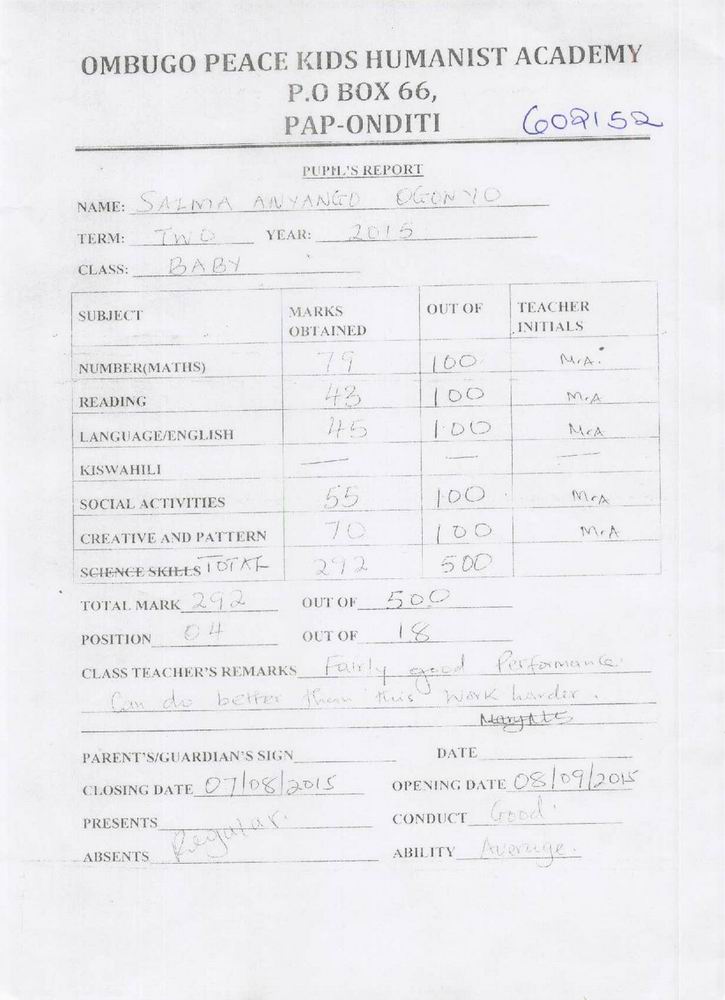 OMBUGO PEACE KIDS HUMANIST ACADEMY
P.O BOX 66,
PAP-ONDITI 602152
PUPIL'S REPORT
NAME: SALMA ANYANGO OGONYO
TERM: TWO YEAR: 2015
CLASS: BABY
SUBJECT MARKS OBTAINED OUT OF TEACHER INITIALS
NUMBER(MATHS) 79 100 M.A.
READING 43 100 M.A
LANGUAGE/ENGLISH 45 100 M.A
KISWAHILI — — —
SOCIAL ACTIVITIES 55 100 M.A
CREATIVE AND PATTERN 70 100 M.A
SCIENCE SKILLS TOTAL 292 500
TOTAL MARK 292 OUT OF 500
POSITION 04 OUT OF 18
CLASS TEACHER'S REMARKS Fairly good Performance.
Can do better than this Work harder.
PARENT'S/GUARDIAN'S SIGN DATE
CLOSING DATE 07/08/2015 OPENING DATE 08/09/2015
PRESENTS Regular. CONDUCT Good.
ABSENTS ABILITY Average.